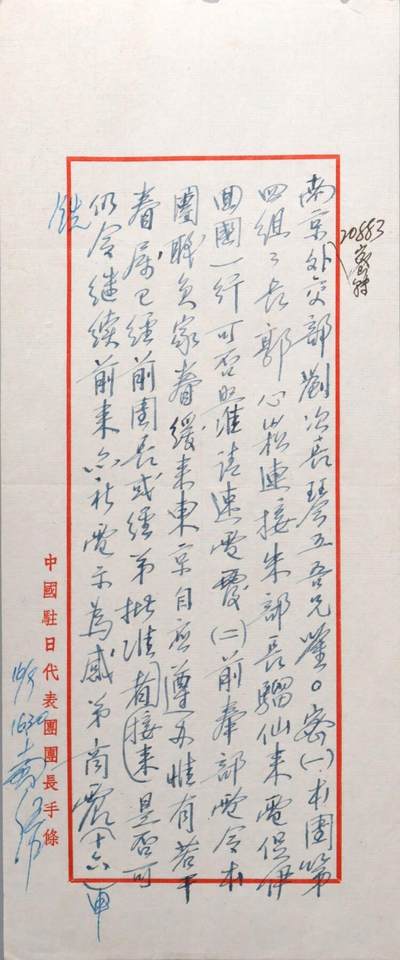 南京外交部劉次長琴五吾兄鑒。密(一)本團第
四組組長郭心崧連接朱部長騮仙來電促伊
回國一行可否照准請速電覆(二)前奉部電令本
團職員家眷緩來東京自應遵办惟有若干
眷屬已經前團長或經弟批准(接來)者是否可
仍令繼續前來亦祈電示為感弟商震(十六)申
中國駐日代表團團長手條